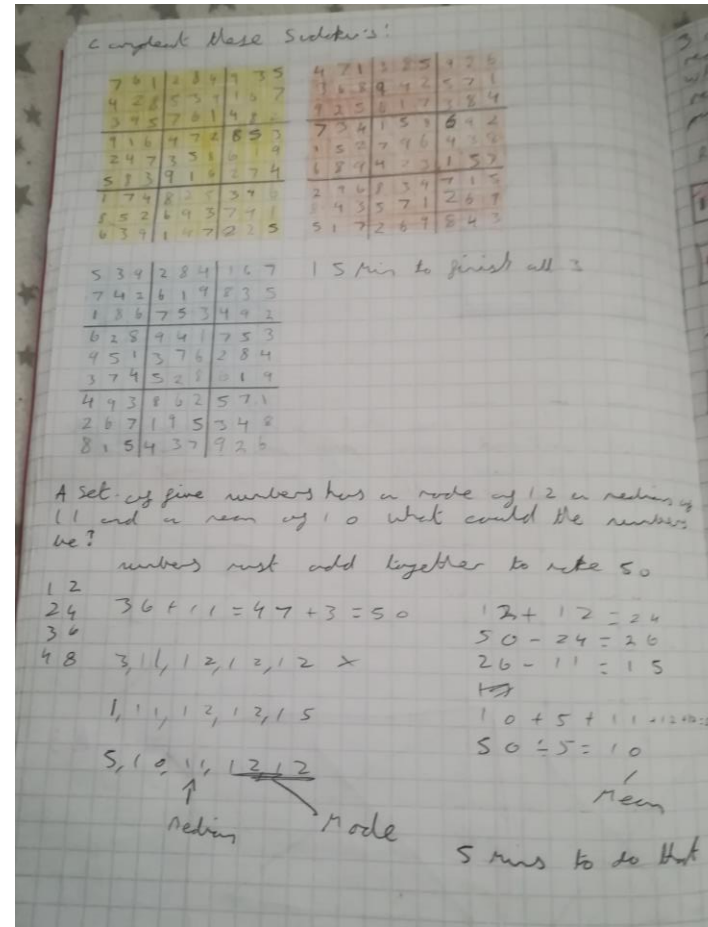 Compleat these Sudoku's:
7 6 1 2 8 4 9 3 5
4 2 8 5 3 9 1 6 7
3 9 5 7 6 1 4 8
9 1 6 4 7 2 8 5 3
2 4 7 3 5 8 6 1 9
5 8 3 9 1 6 2 7 4
1 7 4 8 2 5 3 9 6
8 5 2 6 9 3 7 1
6 3 9 1 4 7 2 5
4 7 1 3 8 5 9 2 6
3 6 8 9 4 2 5 7 1
9 2 5 6 1 7 3 8 4
7 3 4 1 5 8 6 9 2
1 5 2 7 9 6 4 3 8
6 8 9 4 2 3 1 5 7
2 9 6 8 3 4 7 1 5
8 4 3 5 7 1 2 6 9
5 1 7 2 6 9 8 4 3
5 3 9 2 8 4 1 6 7
7 4 2 6 1 9 8 3 5
1 8 6 7 5 3 4 9 2
6 2 8 9 4 1 7 5 3
9 5 1 3 7 6 2 8 4
3 7 4 5 2 8 6 1 9
4 9 3 8 6 2 5 7 1
2 6 7 1 9 5 3 4 8
8 1 5 4 3 7 9 2 6
15 Min to finish all 3
A set of five numbers has a mode of 12 a median of
11 and a mean of 10 what could the numbers
be?
numbers must add together to make 50
12
24
36
48
36 + 11 = 47 + 3 = 50
3, 11, 12, 12, 12 ×
1, 11, 12, 12, 15
5, 10, 11, 12, 12
Median
Mode
12 + 12 = 24
50 - 24 = 26
26 - 11 = 15
10 + 5 + 11 + 12 + 12 =
50 ÷ 5 = 10
Mean
5 mins to do that